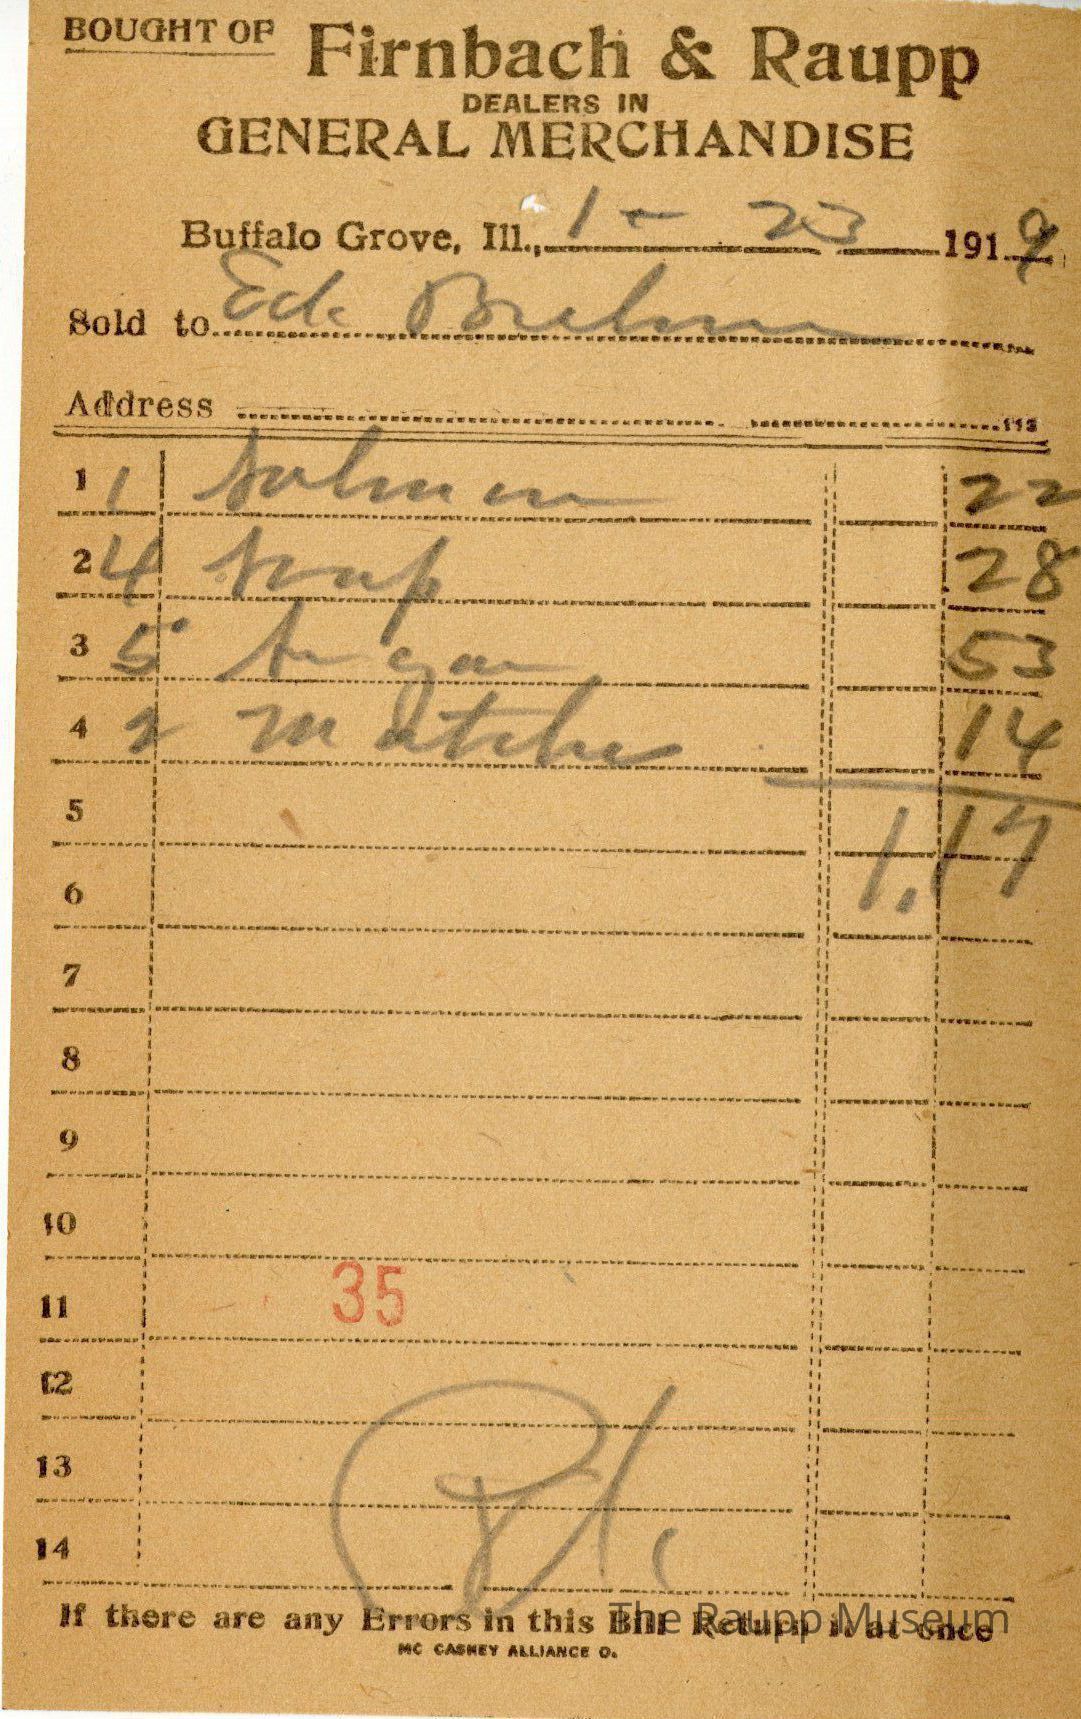 BOUGHT OF Firnbach & Raupp
DEALERS IN
GENERAL MERCHANDISE
Buffalo Grove, Ill., 1 - 23 1919
Sold to Ed. Brehm
Address
1 1 Salmon 22
2 4 Soap 28
3 5 Sugar 53
4 2 Matches 14
5 1.17
6
7
8
9
10
11 35
12
13
14
If there are any Errors in this Bill Return it at once
The Raupp Museum
MC CASKEY ALLIANCE O.